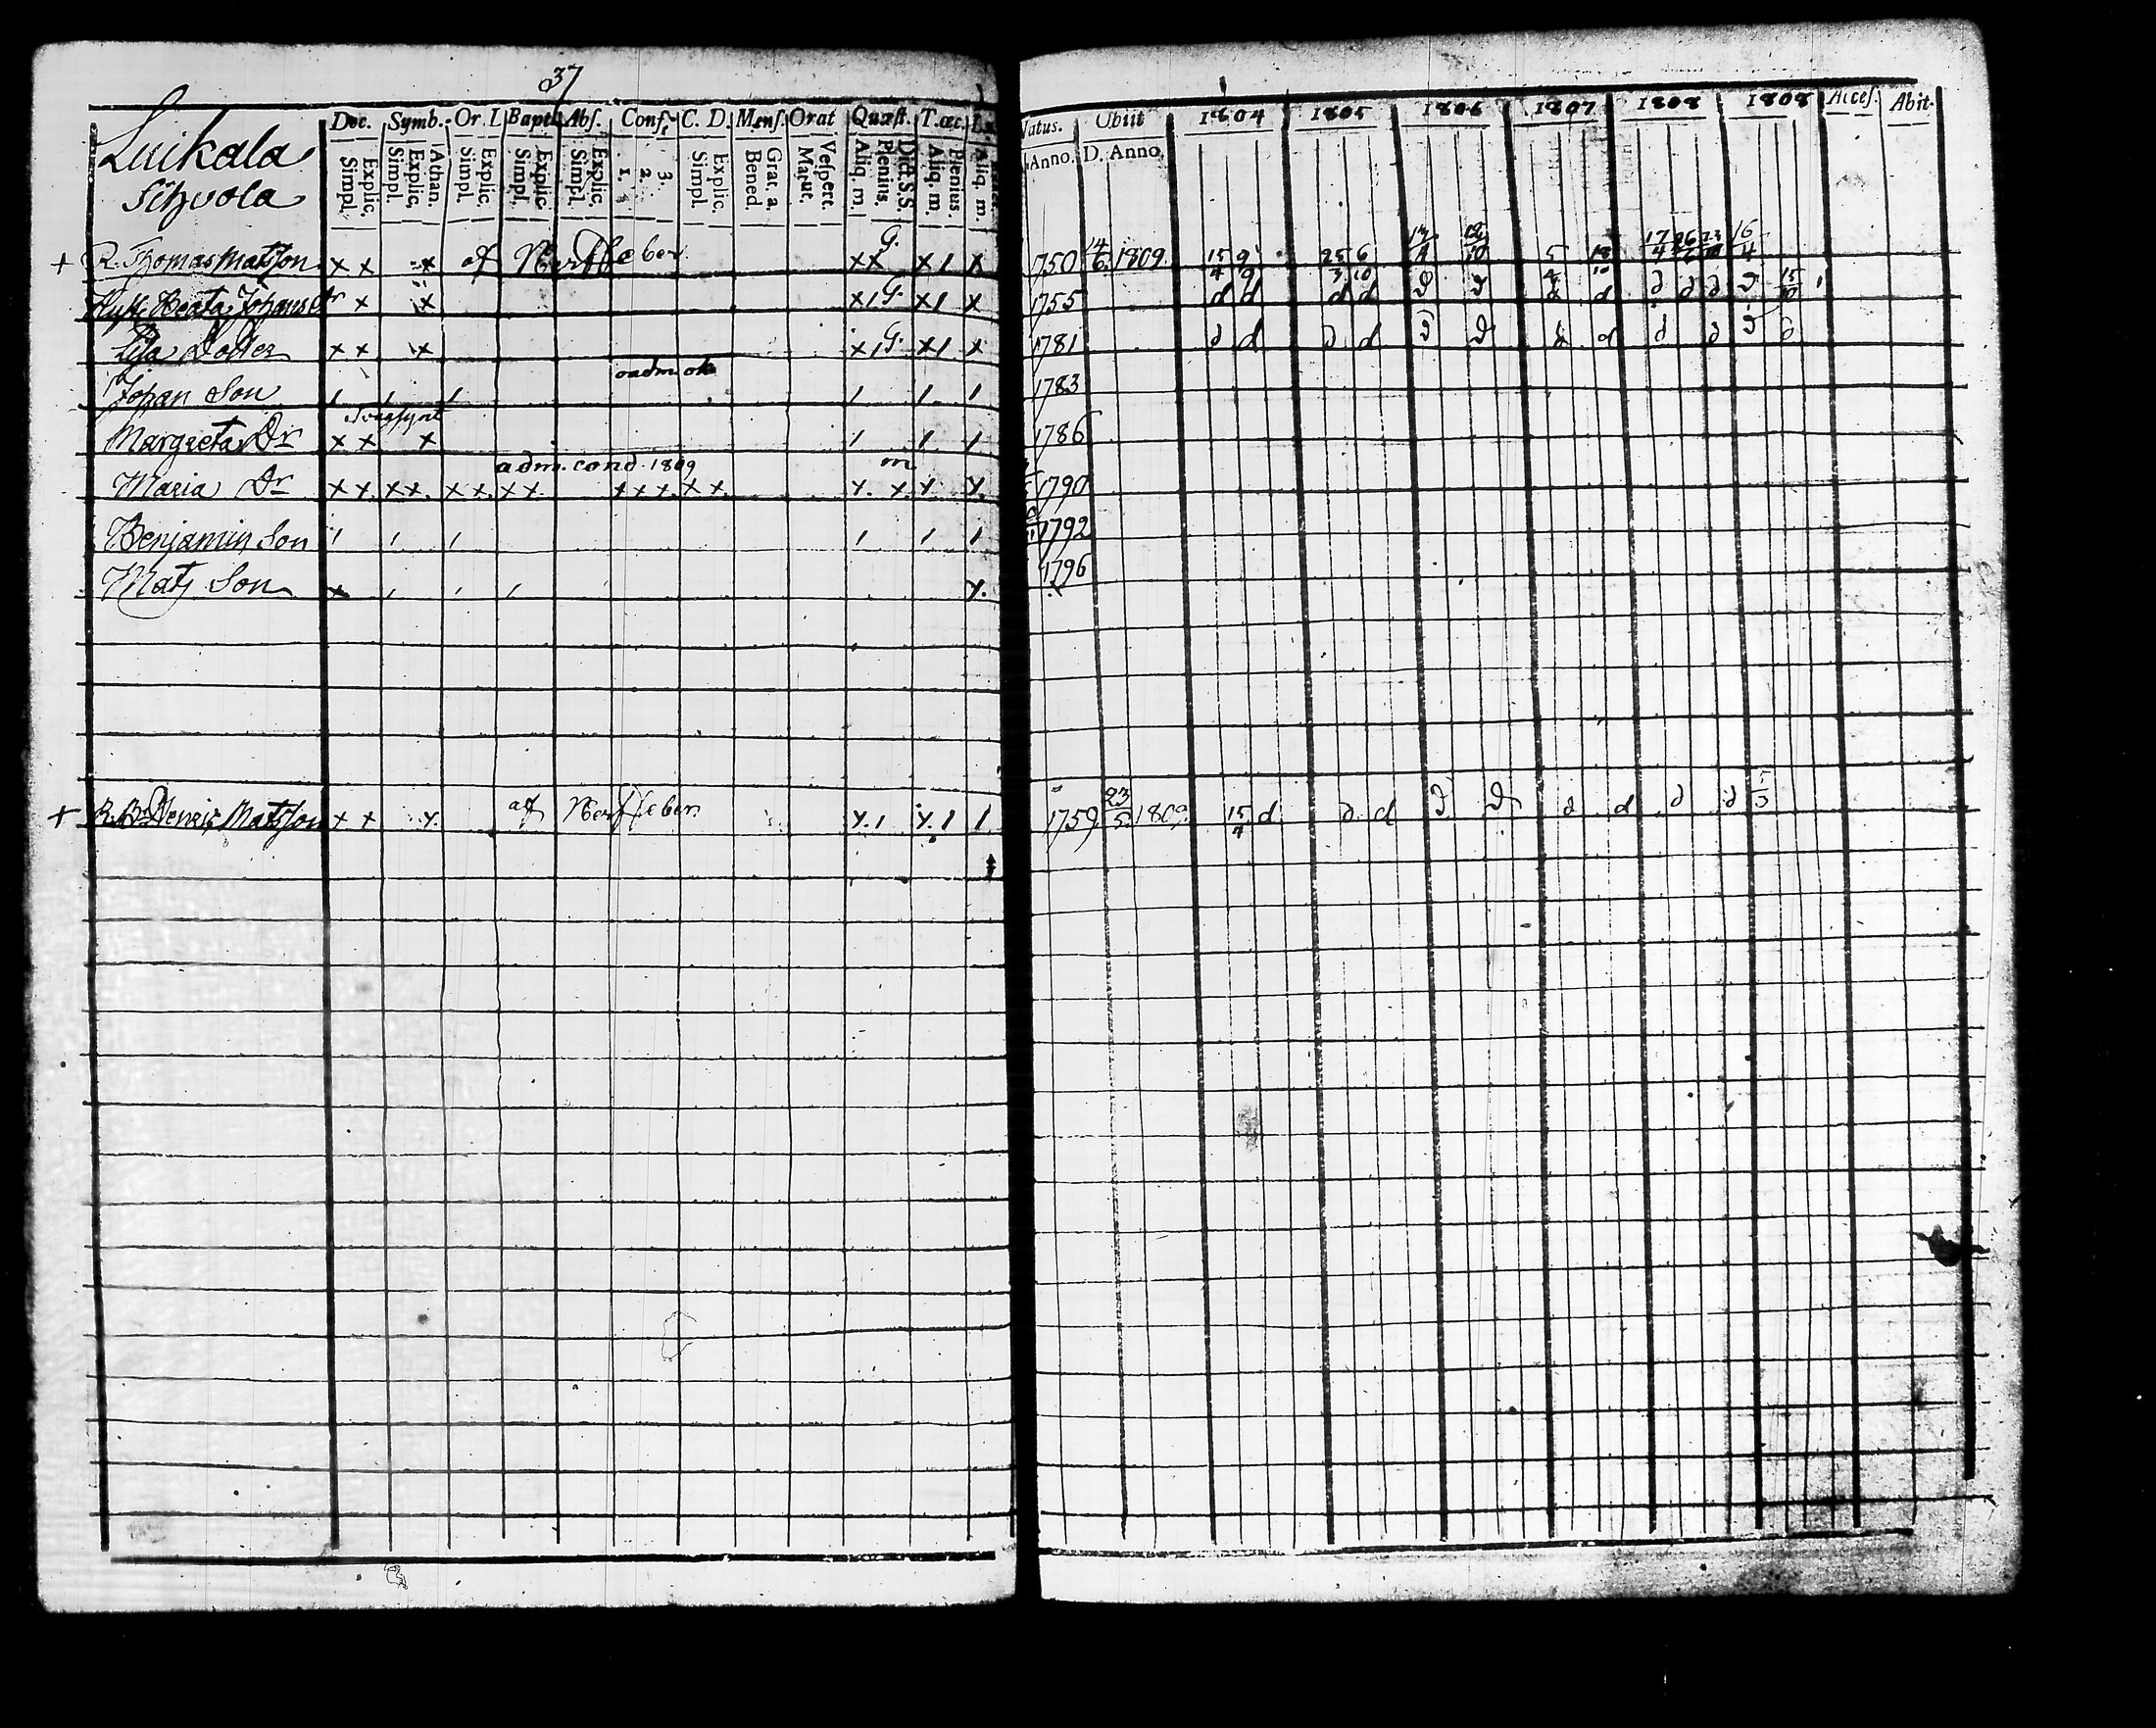 37
Luikala
Doc. Symb. Or. Bapt. Abs. Conf. C. D. Mens. Orat Quæst. T. œc.
Explic. Simpl. Athan. Explic. Simpl. Explic. Simpl. Explic. Simpl. Explic. Simpl. 3. 2. 1. Explic. Simpl. Grat. a. Bened. Vespert. Matut. Dict. S. S. Plenius. Aliq. m. Plenius. Aliq. m. Aliq. m.
+ R. Thomas Matsson x x x af Nerffeber G. xx x 1 x
Hust. Beata Johansdr x x x 1 G. x 1 x
Lisa Dotter x x x x 1 G. x 1 x
Johan Son 1 1 1 1 1 1
Svagsynt
Margreta Dr x x x 1 1 1
adm. cond. 1809 m
Maria Dr x x x x x x x x x x x x x x x x x
Benjamin Son 1 1 1 1 1 1
Mats Son x 1 1 1 x.
+ R. Br. Henric Matsson x x x. af Nerffeber x. 1 x. 1 1
Natus. Obiit 1804 1805 1806 1807 1808 1808 Acces. Abit.
Anno. D. Anno.
1750 14/6 1809. 15/4 9/9 25/3 6/10 17/4 26/6 23/10 16/4
1755 d d d d d d d d d d d d 15/10
1781 d d d d d d d d d d
1783
1786
1790
1792
1796
1759 23/5 1809. 15/4 d d d d d d d d d 5/3